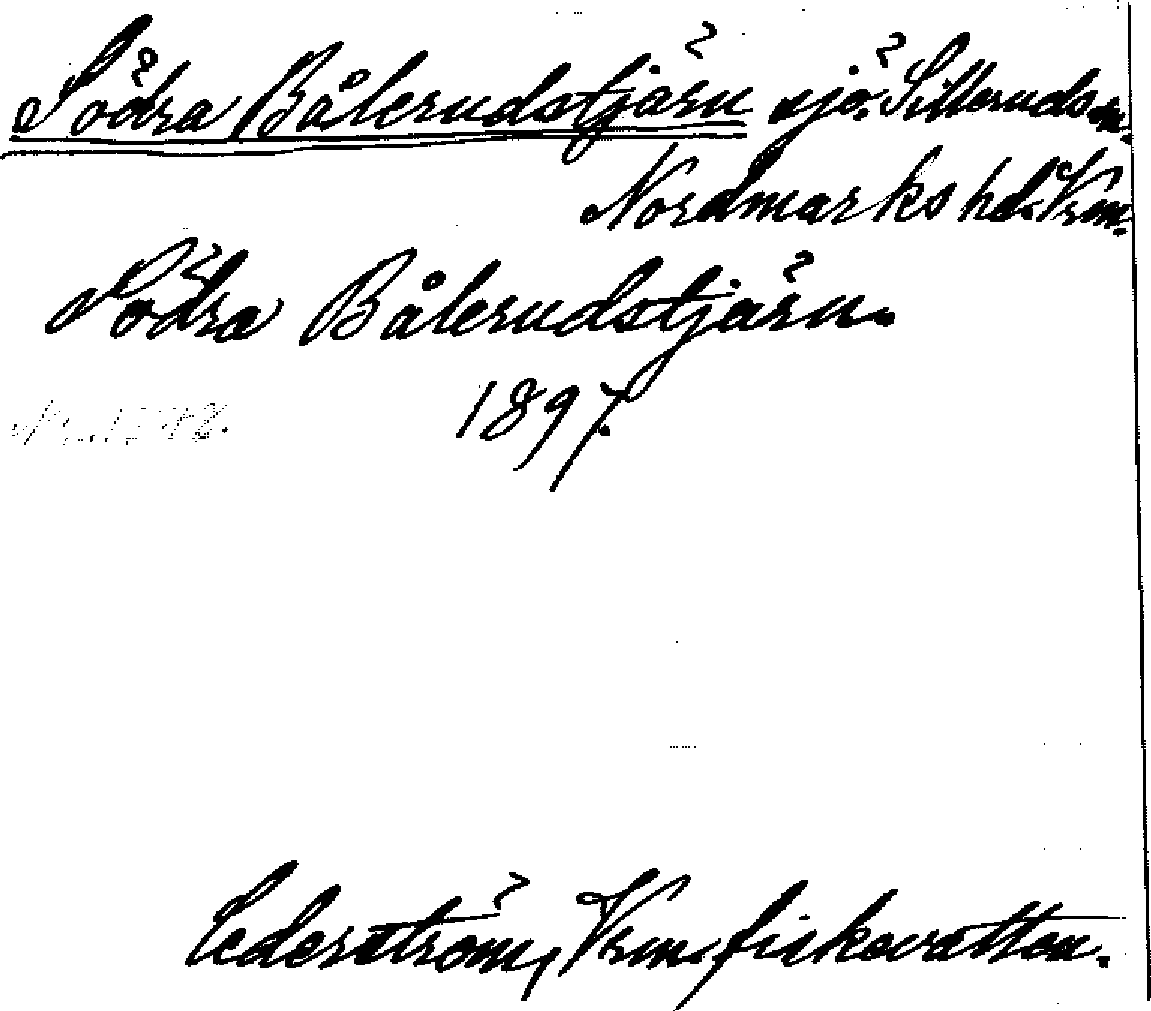 Södra Bålerudstjärn sjö. Silleruds sn.
Nordmarks hd. Vrm.
Södra Bålerudstjärn.
1897.
Cederström, Vrm. fiskevatten.